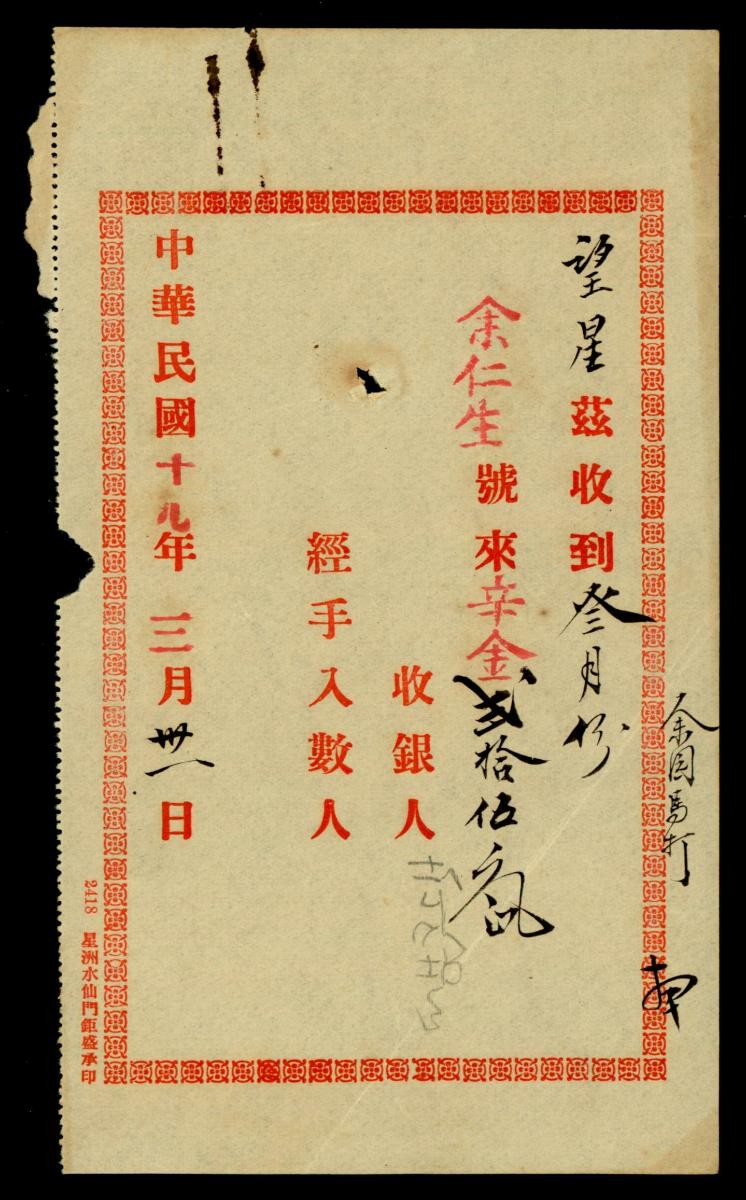 余園馬打
望星茲收到叁月份
余仁生號來辛金貳拾伍元
收銀人
經手入數人
中華民國十九年三月卅一日
2418 星洲水仙門鉅盛承印